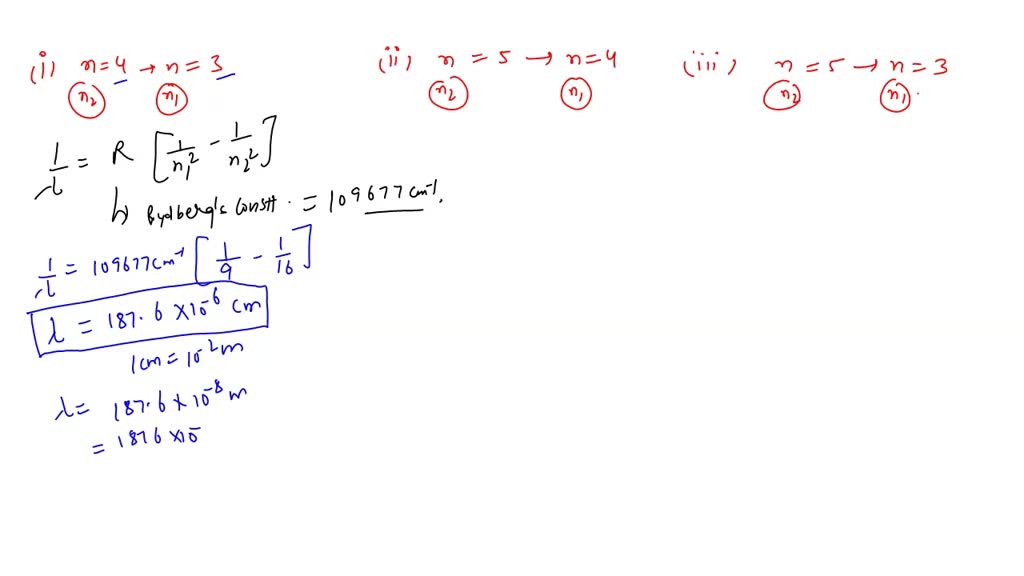 (i) n=4 → n=3
n2 n1
(ii) n = 5 → n=4
n2 n1
(iii) n = 5 → n = 3
n2 n1
1/λ = R [1/n1² - 1/n2²]
↳ Rydberg's Constt. = 109677 cm⁻¹.
1/λ = 109677cm⁻¹ [1/9 - 1/16]
λ = 187.6 ×10⁻⁶ cm
1cm = 10⁻²m
λ= 187.6 × 10⁻⁸ m
= 1876 ×10⁻